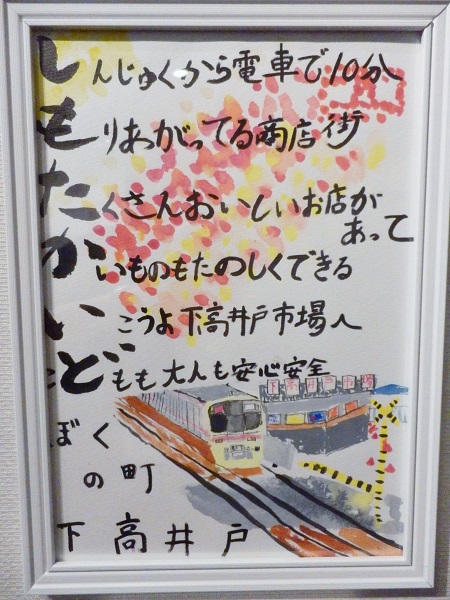 しんじゅくから電車で10分
もりあがってる商店街
たくさんおいしいお店があって
かいものもたのしくできる
いこうよ下高井戸市場へ
こどもも大人も安心安全
ぼくの町
下高井戸
下高井戸市場